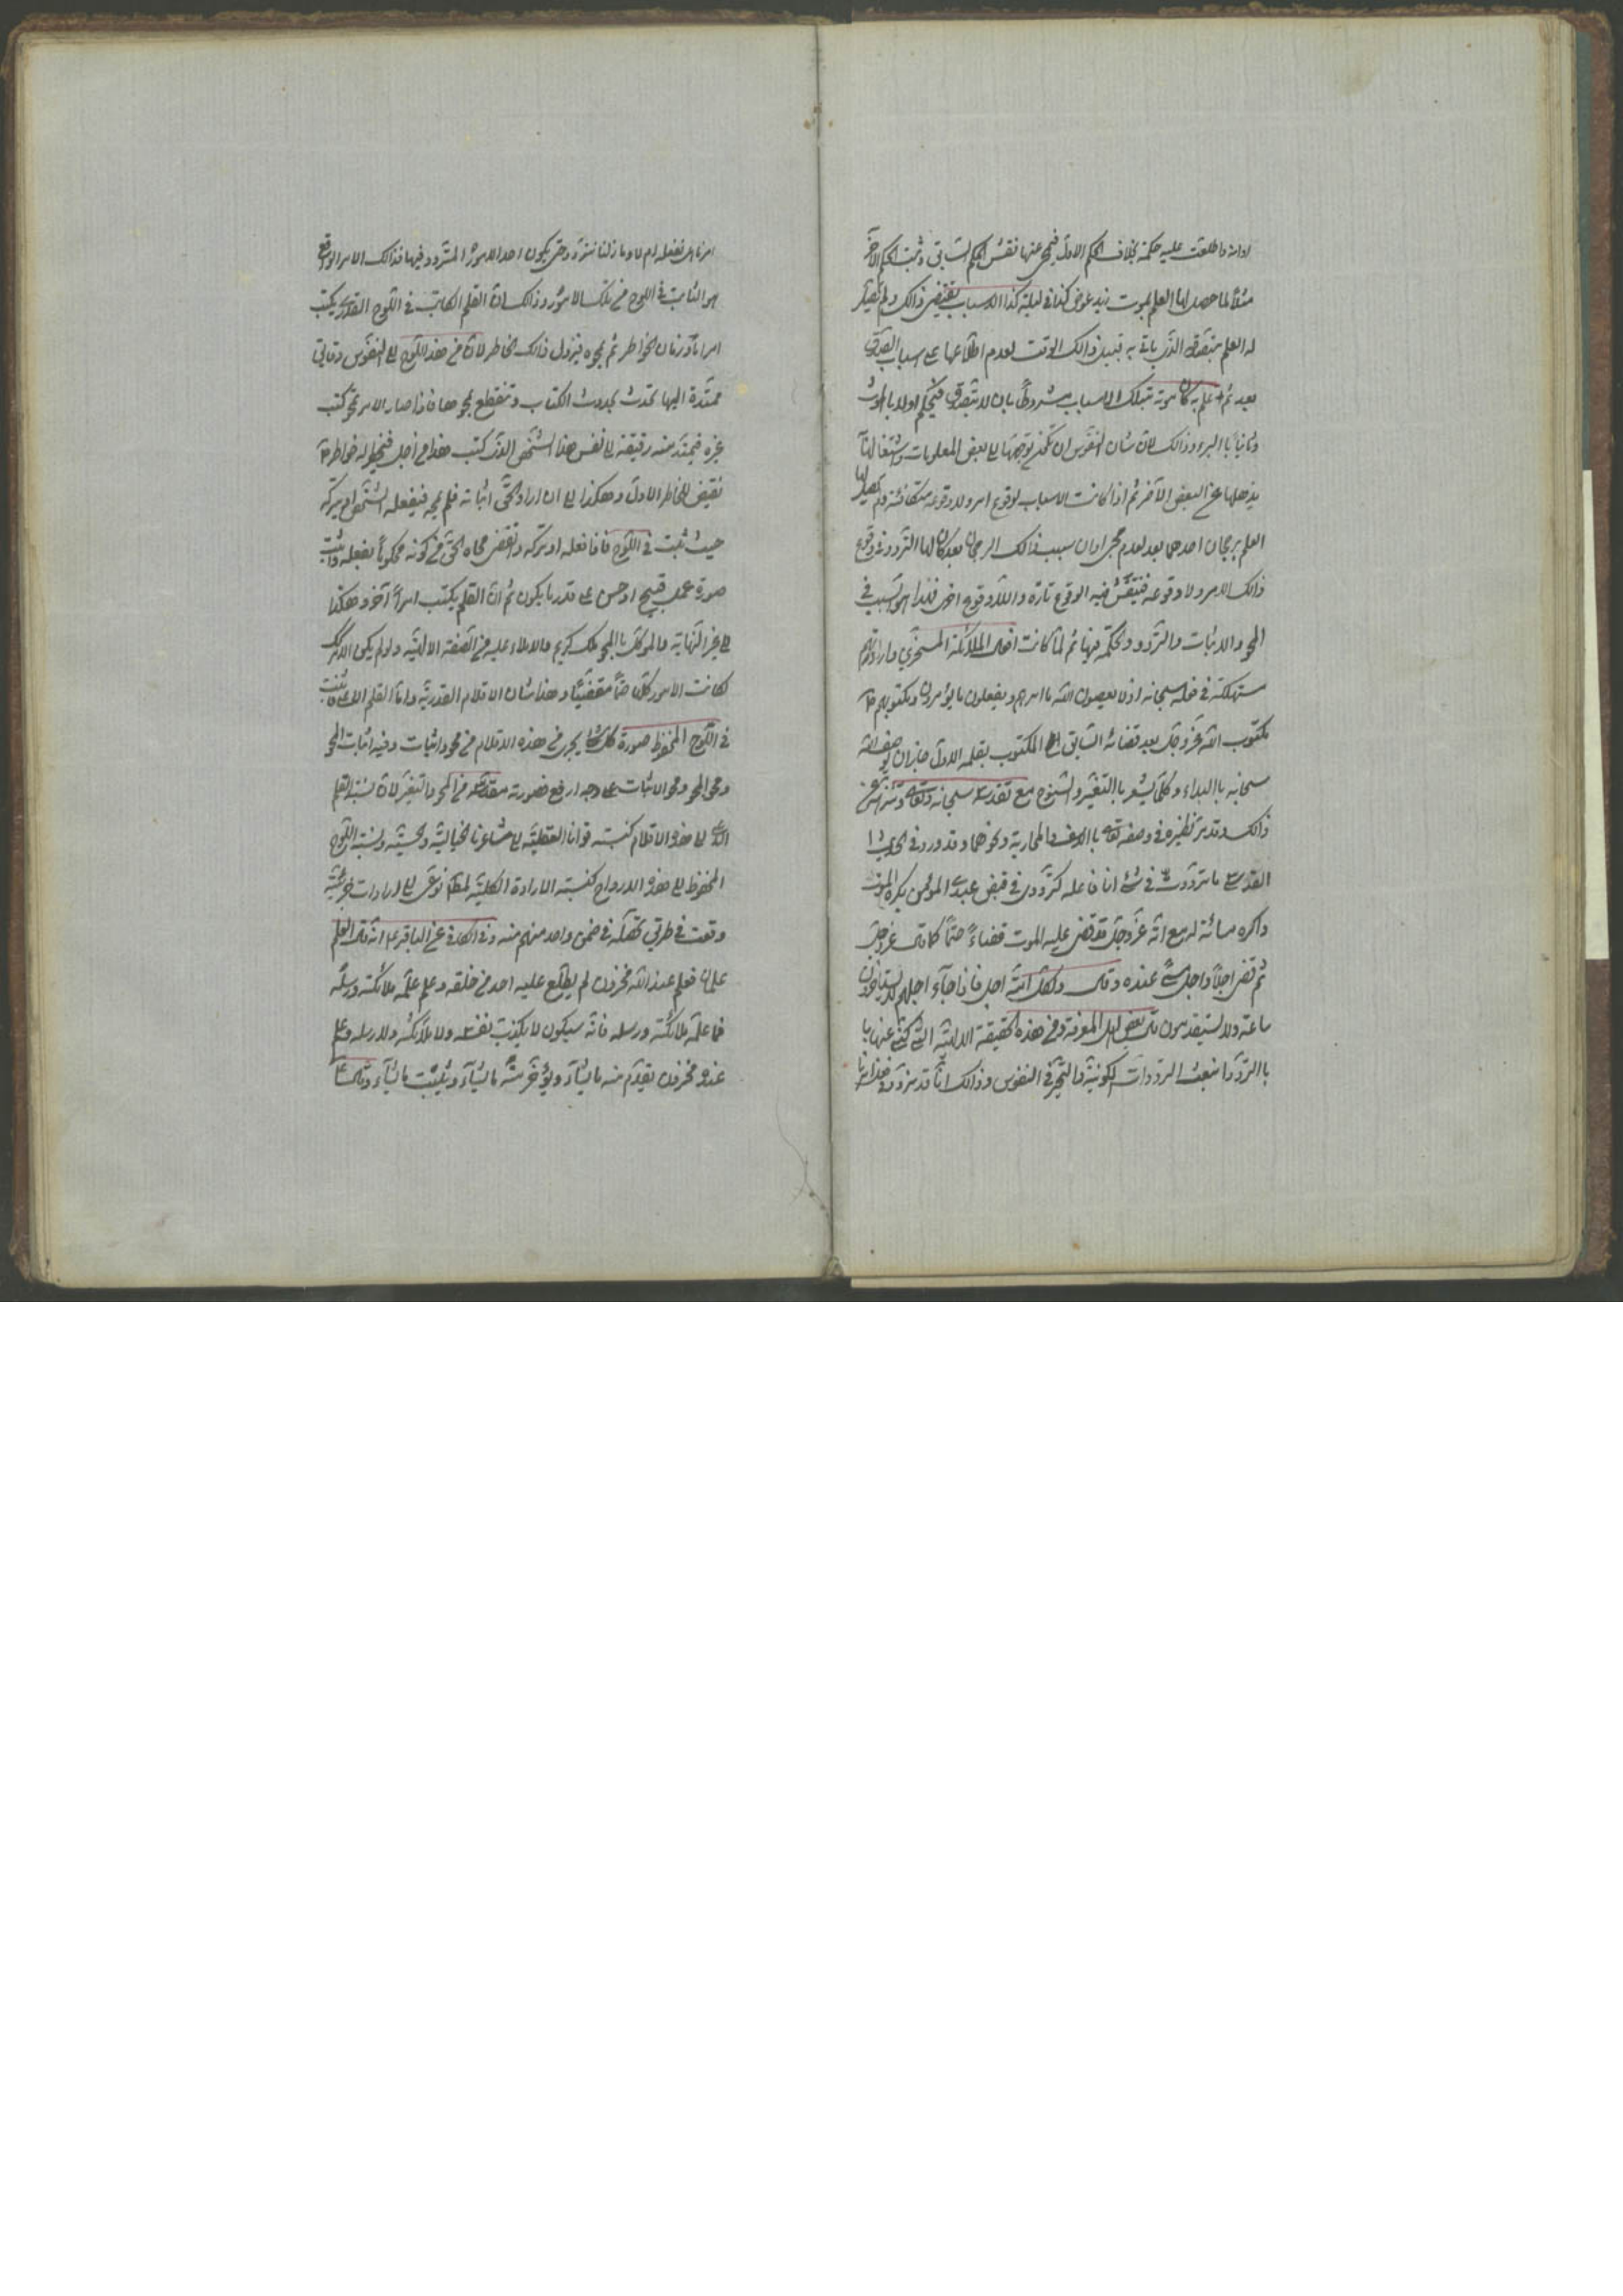 لولاه ما طلعت عليه حكمة بخلاف الحكم الاول فيمحى عنها نقش الحكم السابق ويثبت الحكم الآخر
مثلاً لما حصل لها العلم بموت زيد بمرض كذا فى ليلة كذا الاسباب يقتضى ذالك ولم يحصل
له العلم بتصدقه الذى ياتى به قبيل ذالك الوقت لعدم اطلاعها على اسباب التصدق
بعد ثم علم به كان موته بتلك الاسباب مشروطاً بان لا يتصدق فيحكم اولا بالموت
وثانياً باالبرء وذالك لان شان النفوس ان يكون توجهها الى بعض المعلومات واشتغالها
يذهلها عن البعض الآخر ثم اذا كانت الاسباب لوقوع امر ولا وقوعه متكافئة ولم يحصل لها
العلم برجحان احدهما بعد لعدم مجئ اوان سبب ذالك الرجحان بعد كان لها التردد فى وقوع
ذالك الامر ولا وقوعه فينتقش فيه الوقوع تارة واللا وقوع اخرى فهذا هو السبب فى
المحو والاثبات والتردد والحكمة فيها ثم لما كانت افعال الملائكة المسخرين وارادتهم
مستهلكة فى فعله سبحانه اذ لا يعصون الله ما امرهم ويفعلون ما يؤمرون ومكتوبهم
مكتوب الله عز وجل بعد قضائه السابق المكتوب بقلمه الاول جاز ان يوصف الله
سبحانه باالبداء وكلما يشعر باالتغير والسنوح مع تقدسه سبحانه وتعالى وتنزهه عن
ذالك وقد مر نظيره فى وصفه تعالى باالاسف والمحاربة ونحوهما وقد ورد فى الحديث
القدسى ما ترددت فى شئ انا فاعله كترددى فى قبض عبدى المؤمن يكره الموت
واكره مسائته له مع انه عز وجل قد قضى عليه الموت قضاءً حتماً كما قال عز وجل
ثم قضى اجلاً واجل مسمى عنده وقال ولكل امة اجل فاذا جآء اجلهم لا يستاخرون
ساعة ولا يستقدمون قال بعض اهل المعرفة ومن هذه الحقيقة الالهية التى كنى عنها با
باالتردد انبعث الترددات الكونية والتحير فى النفوس وذالك انا قد نتردد فى فعل امر ما
امر ما هل نفعله ام لا وما زلنا نتردد حتى يكون احد الامور المتردد فيها فذالك الامر الواقع
هو الثابت فى اللوح من تلك الامور وذالك ان القلم الكاتب فى اللوح القدرى يكتب
امرا ما وزمان الخواطر ثم يمحوه فيزول ذالك الخاطر لان من هذا اللوح الى النفوس رقائق
ممتدة اليها تحدث بحدوث الكتاب وتنقطع بمحوها فاذا صار الامر ممحو كتب
غيره فيمتد منه رقيقة الى نفس هذا الشخص الذى كتب هذا من اجل فيخطر له خاطر
نقيض الخاطر الاول وهكذا الى ان اراد الحق اثباته فلم يمحه فيفعله الشخص او يتركه
حيث ثبت فى اللوح فاذا فعله او تركه وانقضى محاه الحق من كونه محكوماً بفعله واثبت
صورة عمل قبيح او حسن على قدر ما يكون ثم ان القلم يكتب امراً آخر وهكذا
الى غير النهاية والموكل باالمحو ملك كريم والاملاء عليه من الصفة الالهية ولو لم يكن الامر كك
لكانت الامور كلها حتماً مقضياً وهذا شان الاقلام القدرية واما القلم الاعلى فاثبت
فى اللوح المحفوظ صورة كل شئ يجرى من هذه الاقلام من محو واثبات وفيه اثبات المحو
ومحو المحو ومحو الاثبات على وجه ارفع فصورته مقدسة من المحو والتغير لان نسبة القلم
الاعلى الى هذه الاقلام كنسبة قوانا العقلية الى مشاعرنا الخيالية والحسية ونسبة اللوح
المحفوظ الى هذه الالواح كنسبة الارادة الكلية لمطلب نوعى الى ارادات جزئية
وقعت فى طريق تحصيله فى ضمن واحد منهم منه وفى الكافى عن الباقر ع انه قال العلم
علمان فعلم عند الله مخزون لم يطلع عليه احد من خلقه وعلم علمه ملائكته ورسله
فما علمه ملائكته ورسله فانه سيكون لا يكذب نفسه ولا ملائكته ولا رسله وعلم
عنده مخزون يقدم منه ما يشآء ويؤخر منه ما يشآء ويثبت ما يشآء وقال